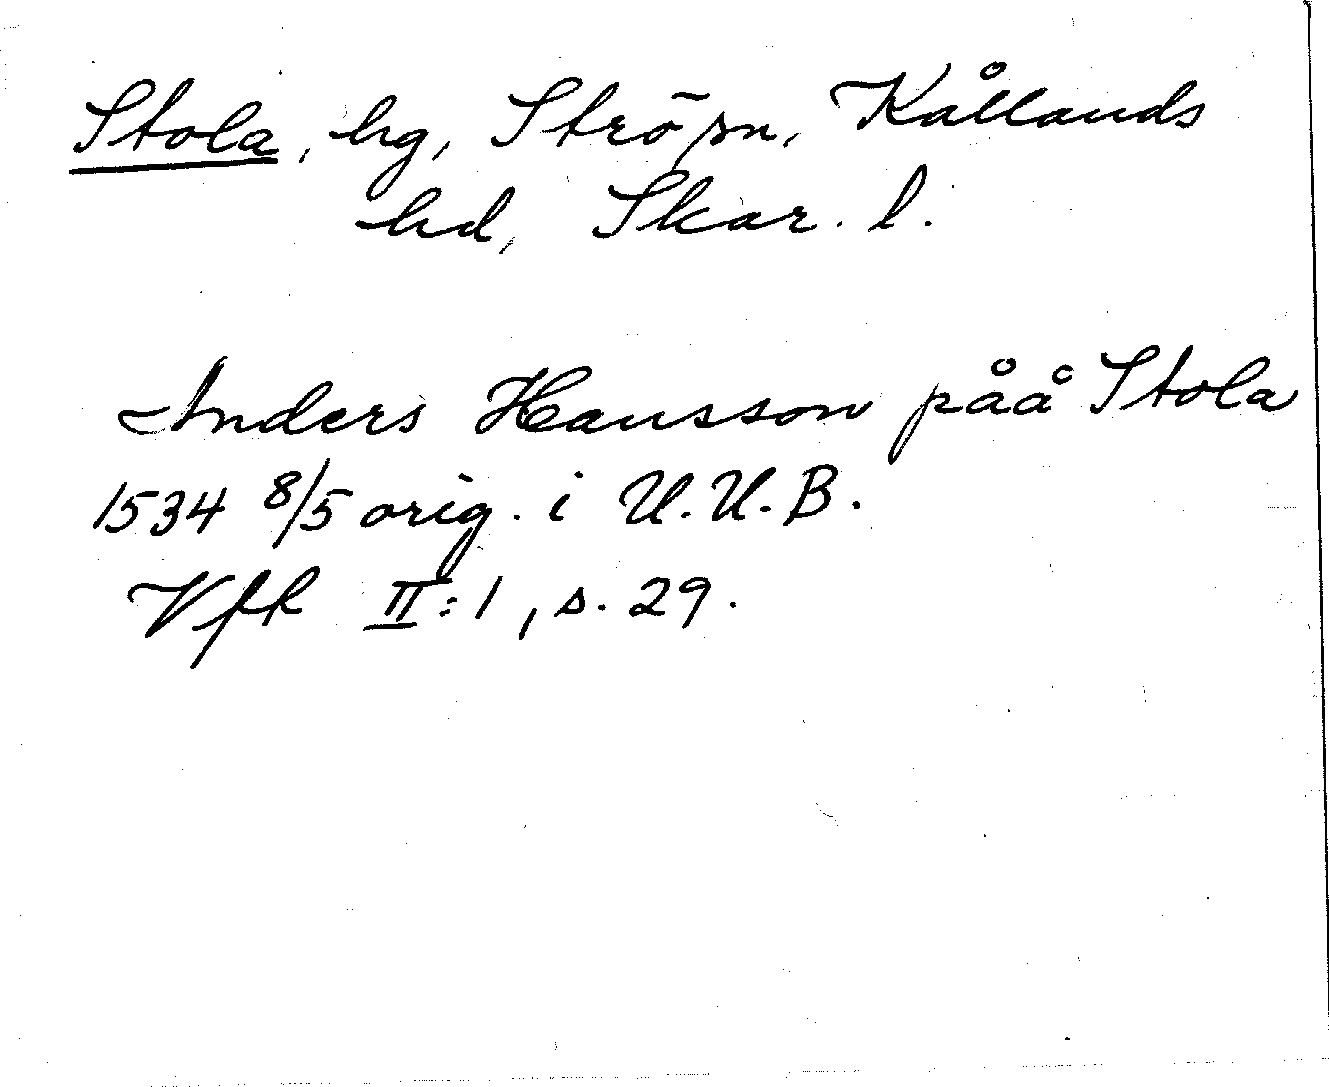 Stola, hg, Strö sn, Kållands
hd, Skar. l.
Anders Hansson påå Stola
1534 8/5 orig. i U.U.B.
Vfh II:1, s. 29.